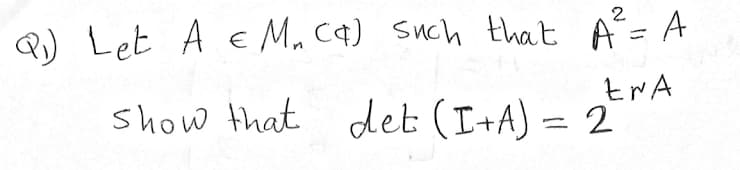 Q1) Let A ∈ Mn (ℂ) such that A² = A
show that det (I+A) = 2^{trA}